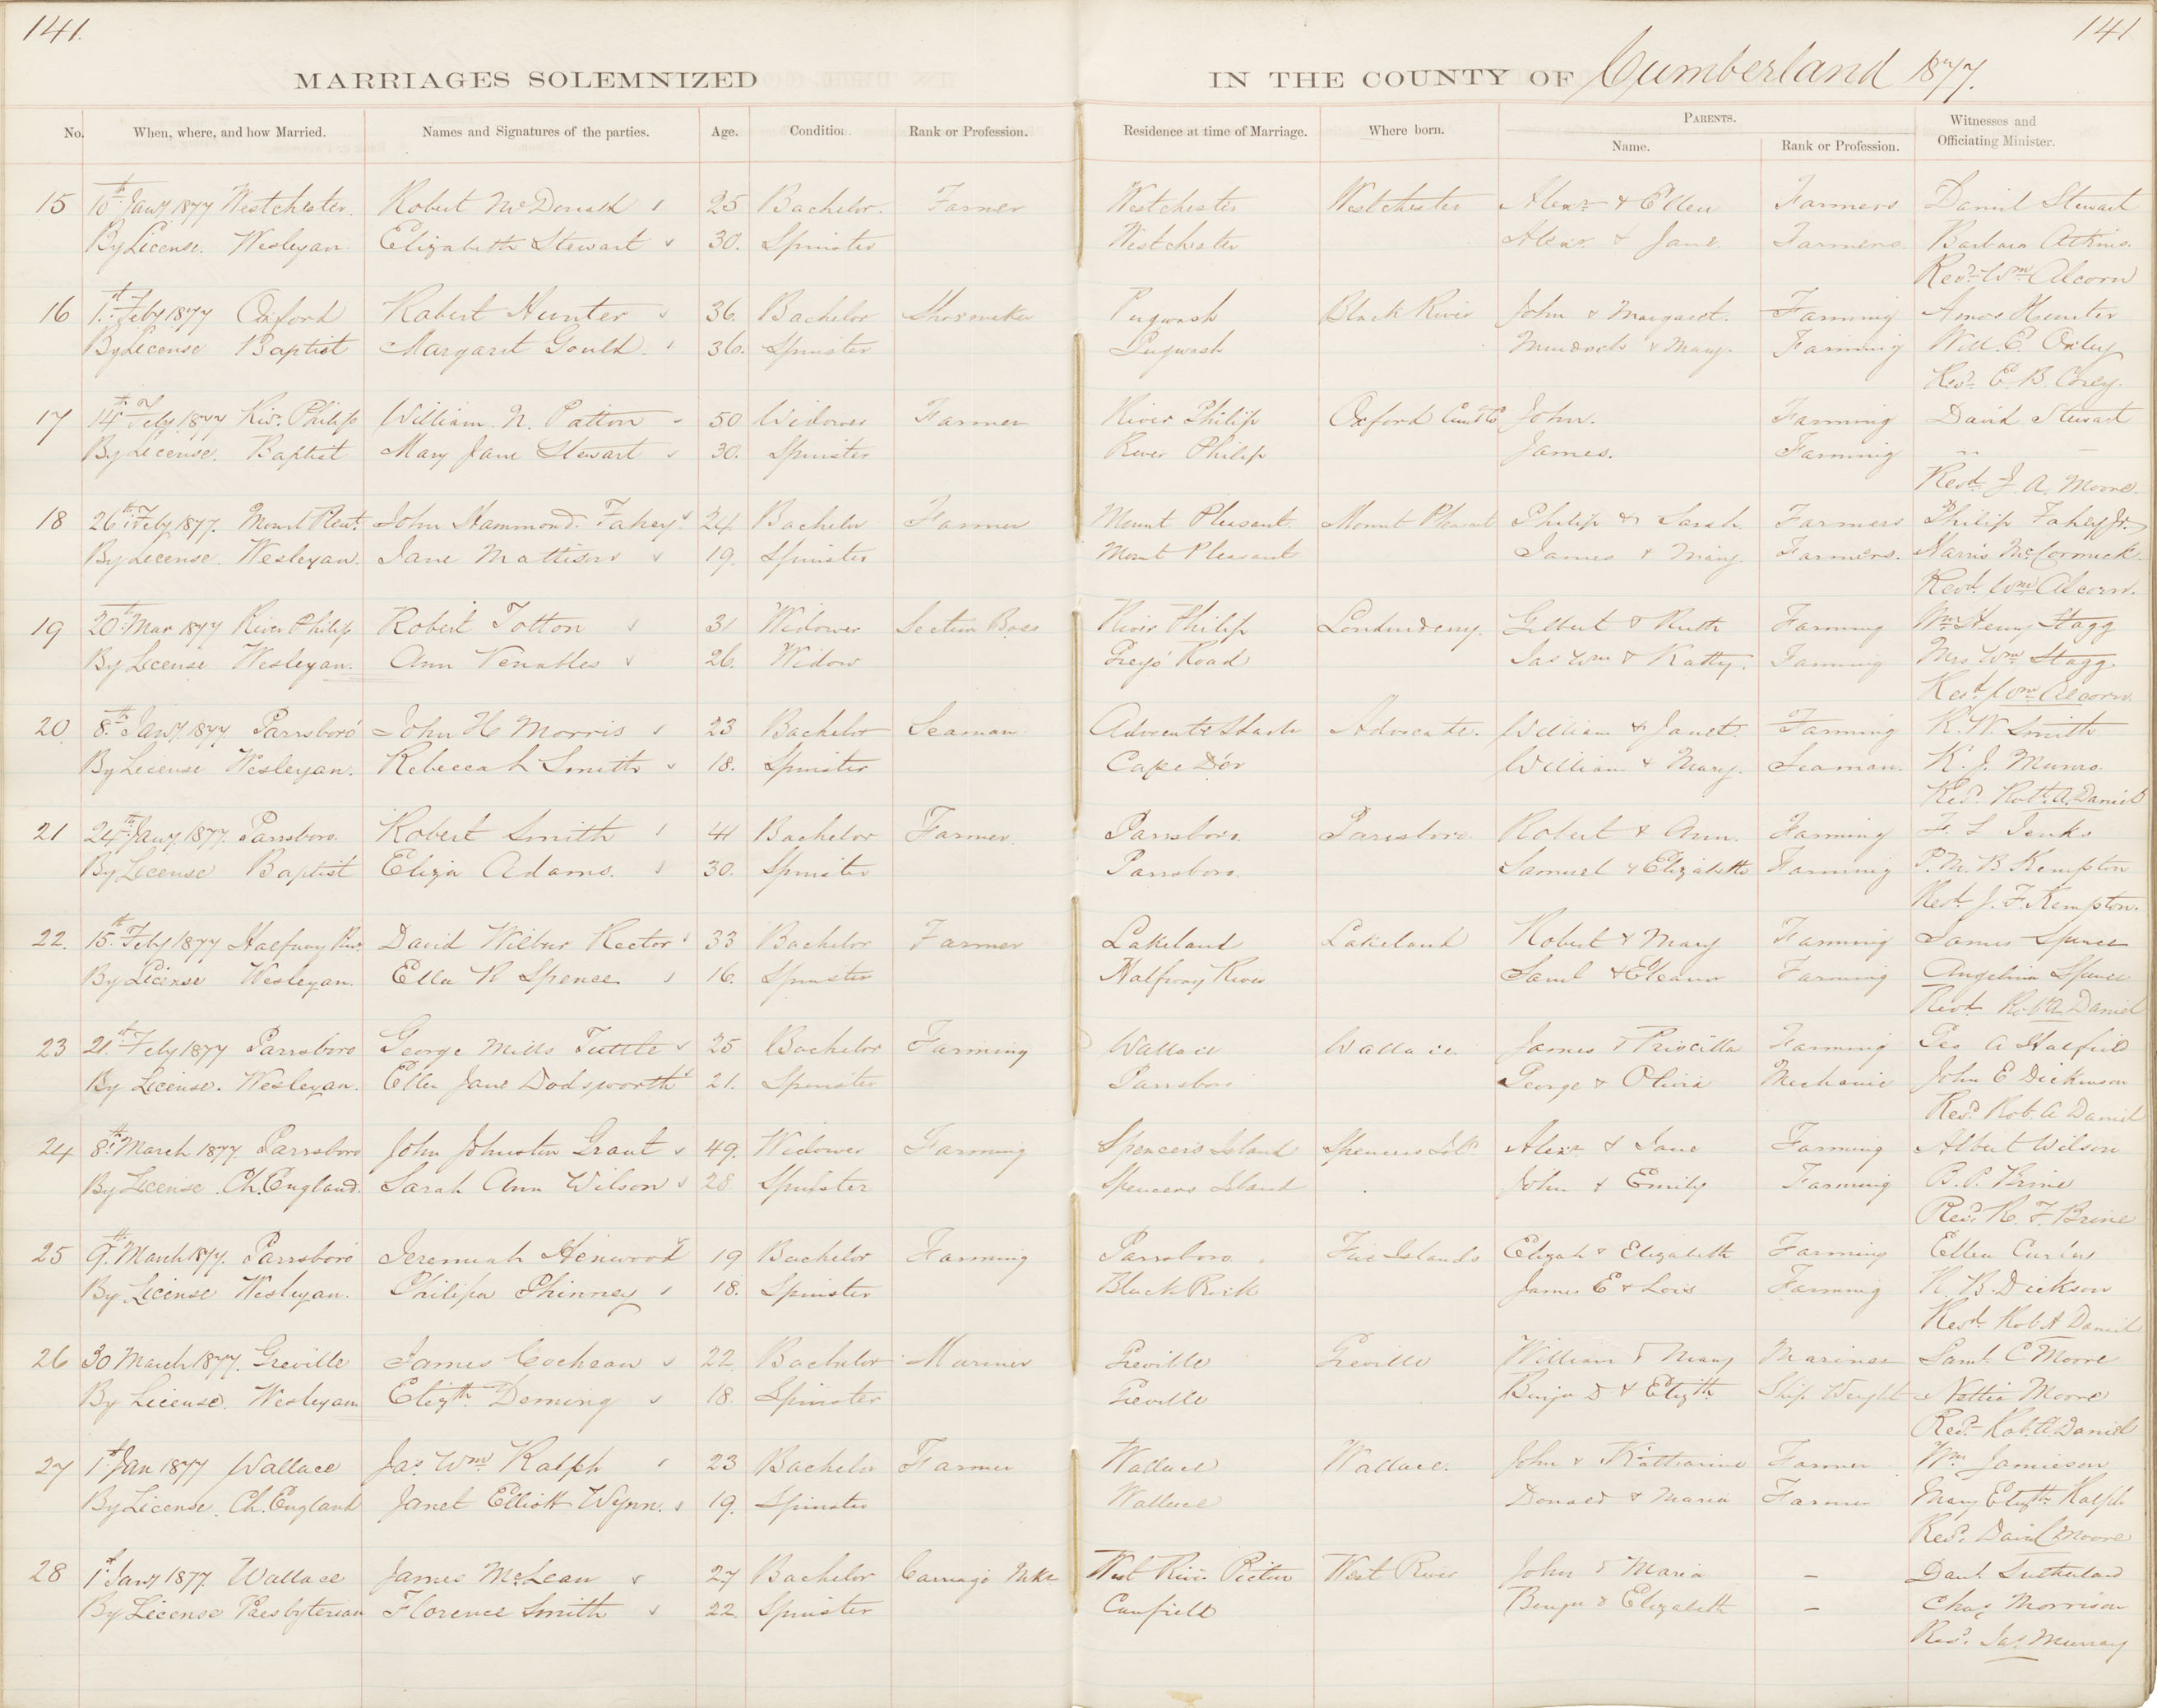 141.
141
MARRIAGES SOLEMNIZED IN THE COUNTY OF Cumberland 1877.
No. When, where, and how Married. Names and Signatures of the parties. Age. Condition. Rank or Profession. Residence at time of Marriage. Where born. PARENTS. Witnesses and
Name. Rank or Profession. Officiating Minister.
15 10th Jany 1877 Westchester. Robert McDonald 25 Bachelor. Farmer Westchester Westchester Alexr & Ellen Farmers Daniel Stewart
By License. Wesleyan. Elizabeth Stewart 30. Spinster Westchester Alexr & Jane Farmers. Barbara Atkins.
Revd. Wm Alcorn
16 1st Feby 1877 Oxford Robert Hunter 36. Bachelor Shoemaker Pugwash Black River John & Margaret. Farming Amos Hunter
By License Baptist Margaret Gould. 36. Spinster Pugwash Murdoch & Mary. Farming Will. E. Oxley
Revd. E. B. Corey.
17 14th Feby 1877 Rivr. Philip William. N. Patton 50 Widower Farmer River Philip Oxford John. Farming David Stewart
By License. Baptist Mary Jane Stewart 30. Spinster River Philip James. Farming " –
Revd. J. A. Moore.
18 26th Feby 1877. Mount Pleast. John Hammond. Fahey 24. Bachelor Farmer Mount Pleasant. Mount Pleasant Philip & Sarah Farmers Philip Fahey Jr.
By License. Wesleyan. Jane Mattison 19. Spinster Mount Pleasant James & Mary. Farmers. Harris McCormick
Revd. Wm Alcorn.
19 20th Mar 1877 River Philip Robert Totton 31 Widower Section Boss River Philip Londonderry. Gilbert & Ruth Farming Wm Henry Stagg
By License Wesleyan. Ann Venables 26. Widow Greys' Road Jas Wm & Katty. Farming Mrs Wm Stagg.
Revd. Wm Alcorn.
20 8th Jany 1877. Parrsboro' John H Morris 23 Bachelor Seaman Advocate Advocate. William & Janet. Farming R. W. Smith
By License Wesleyan. Rebecca L Smith 18. Spinster Cape D'or William & Mary. Seaman. K. J. Munro.
Revd. Robt. A. Daniel
21 24th Jany 1877. Parrsboro. Robert Smith 41 Bachelor Farmer. Parrsboro. Parrsboro. Robert & Ann. Farming F. L Jenks
By License Baptist Eliza Adams. 30. Spinster Parrsboro. Samuel & Elizabeth Farming P. M. B Kempton
Revd. J. F. Kempton.
22. 15th Feby 1877 Halfway Rivr. David Wilbur Rector 33 Bachelor Farmer Lakeland Lakeland Robert & Mary Farming James Spence
By License Wesleyan. Ella R Spence 16. Spinster Halfway River Saml & Eleanor Farming Angelina Spence
Revd. Rob A Daniel
23 21st Feby 1877 Parrsboro George Mills Tuttle 25 Bachelor Farming Wallace Wallace. James & Priscilla Farming Geo A Hatfield
By License. Wesleyan. Ellen Jane Dodsworth 21. Spinster Parrsboro George & Olivia Mechanic John E Dickinson
Revd. Rob. A Daniel
24 8th March 1877 Parrsboro John Johnston Grant 49. Widower Farming Spencers Island Spencers Isld. Alexr & Jane Farming Albert Wilson
By License. Ch. England. Sarah Ann Wilson 28. Spinster Spencers Island John & Emily Farming Brine
Revd. R. F. Brine
25 9th March 1877. Parrsboro' Jeremiah Henwood 19 Bachelor Farming Parrsboro. Five Islands Elijah & Elizabeth Farming Ellen
By License Wesleyan. Philipa Phinney 18. Spinster Black Rock James E & Lois Farming N. B. Dickson
Revd. Rob A Daniel
26 30 March 1877. Greville James Cochran 22. Bachelor Mariner Greville Greville William & Mary Mariner Saml. C Moore
By License. Wesleyan Elizth Deming 18. Spinster Greville Benjn D & Elizth Ship Wright Nettie Moore
Revd. Rob. A Daniel
27 1st Jan 1877 Wallace Jas. Wm Ralph 23 Bachelor Farmer Wallace Wallace. John & Katharine Farmer Wm Jamieson
By License. Ch. England Janet Elliott Wynn. 19. Spinster Wallace Donald & Maria Farmer Mary Elizth Ralph
Revd. David C Moore
28 1st Jany 1877. Wallace James McLean 27 Bachelor Carriage Mkr West River Pictou West River John & Maria – Danl. Sutherland
By License Presbyterian Florence Smith 22. Spinster Canfield Benjn & Elizabeth – Chas Morrison
Revd. Jas. Murray